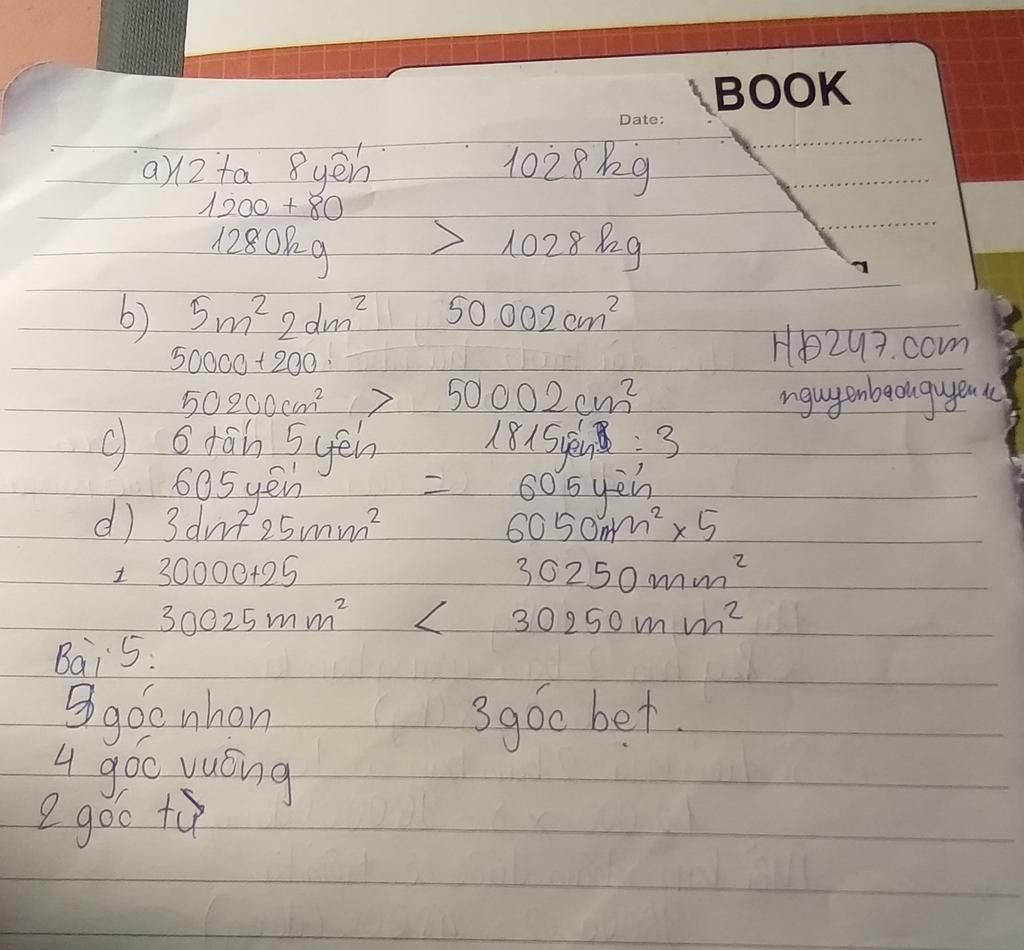 BOOK
Date:
a) 12 tạ 8 yến 1028kg
1200 + 80
1280kg > 1028kg
b) 5m² 2dm² 50 002cm²
50000 + 200
50200cm² > 50 002cm²
HD247.com
c) 6 tấn 5 yến 1815yến : 3
605 yến = 605 yến
d) 3dm² 25mm² 6050mm² x 5
30000+25 30250mm²
30025mm² < 30250mm²
Bài 5:
góc nhọn 3 góc bẹt.
4 góc vuông
2 góc tù